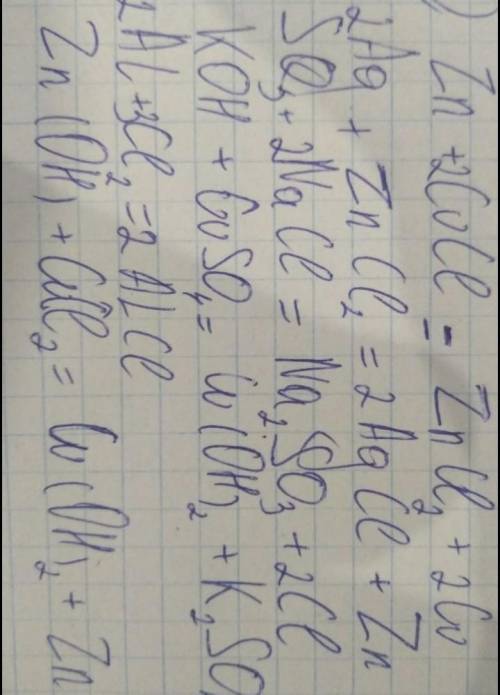 Zn + 2CuCl = ZnCl₂ + 2Cu
2Ag + ZnCl₂ = 2AgCl + Zn
SO₃ + 2NaCl = Na₂SO₃ + 2Cl
KOH + CuSO₄ = Cu(OH)₂ + K₂SO
2Al + 3Cl₂ = 2AlCl
Zn(OH) + CuCl₂ = Cu(OH)₂ + Zn